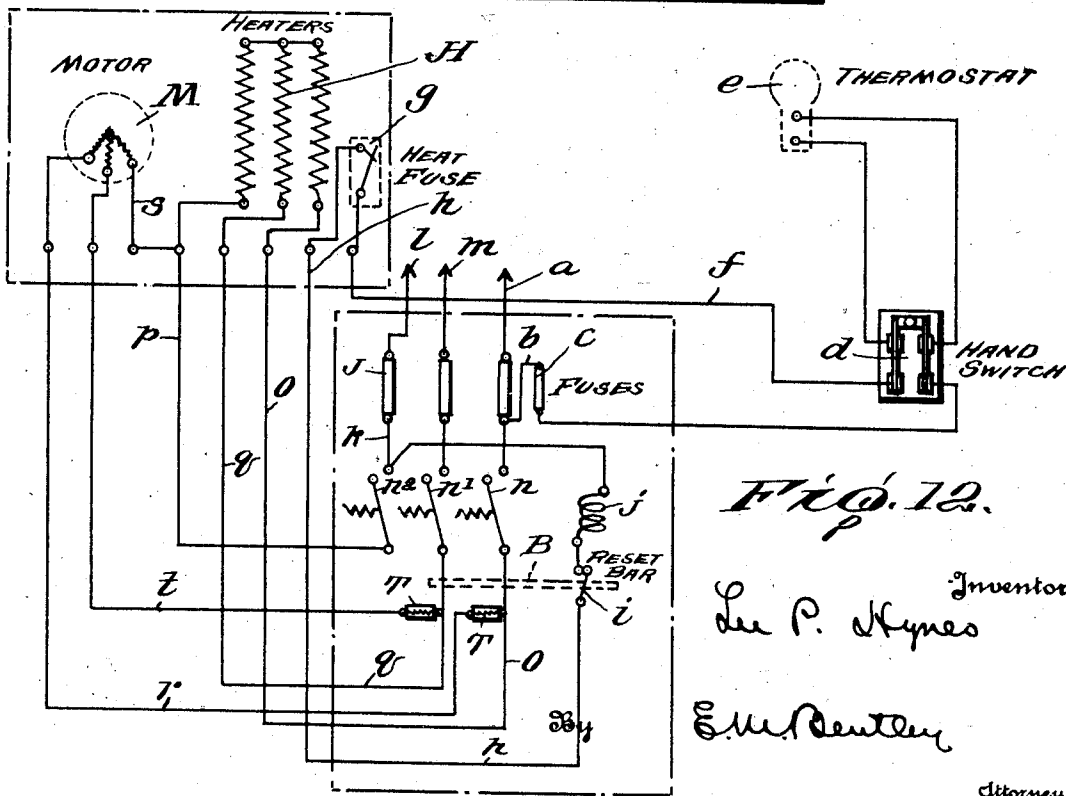 HEATERS
MOTOR
H
M
g
HEAT
FUSE
s
h
e
THERMOSTAT
l
m
a
f
p
o
q
J
b
c
FUSES
k
d
HAND
SWITCH
n²
n¹
n
j
B
RESET
BAR
i
t
T
T
q
o
r
h
Fig. 12.
Inventor
Lee P. Hynes
By
E. M. Bentley
Attorney